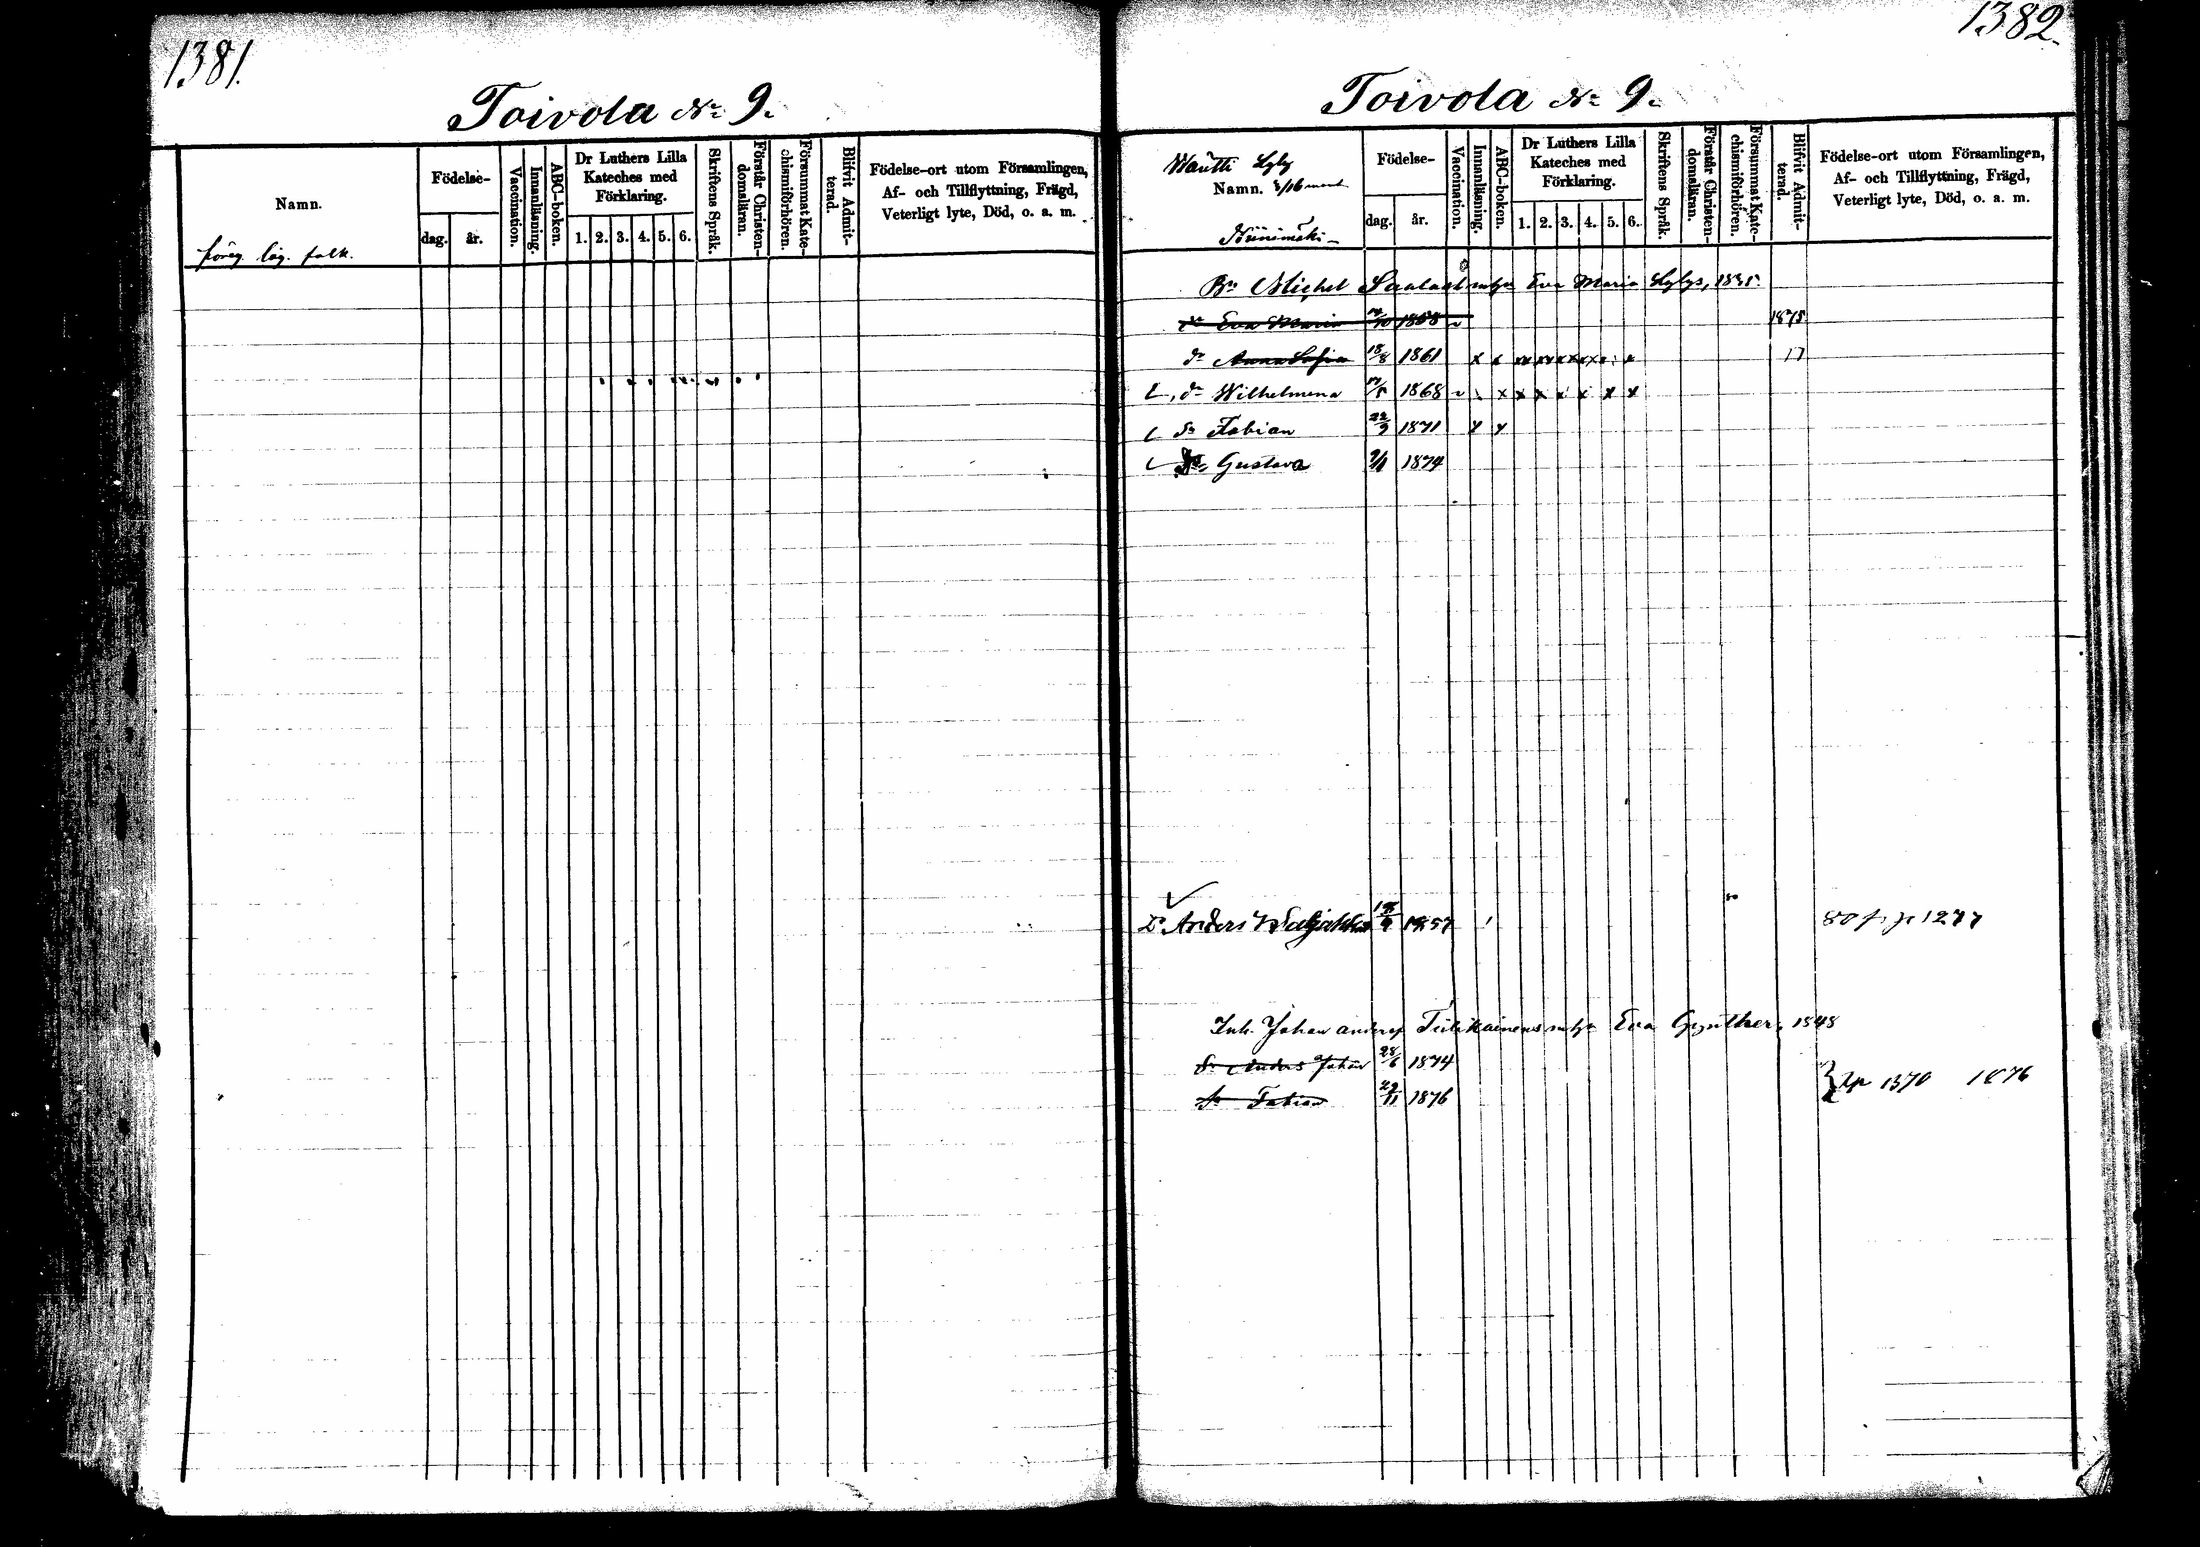 1381.
Toivola No 9.
Namn.
Födelse-
dag. år.
Vaccination.
Innanläsning.
ABC-boken.
Dr Luthers Lilla Kateches med Förklaring.
1. 2. 3. 4. 5. 6.
Skriftens Språk.
Förstår Christendomsläran.
Försummat Katechismiförhören.
Blifvit Admitterad.
Födelse-ort utom Församlingen,
Af- och Tillflyttning, Frägd,
Veterligt lyte, Död, o. a. m.
föreg. läg. folk.
1382.
Toivola No 9.
Wäutti Lyly
Namn. 3/16 mant
Niinimäki
Födelse-
dag. år.
Vaccination.
Innanläsning.
ABC-boken.
Dr Luthers Lilla Kateches med Förklaring.
1. 2. 3. 4. 5. 6.
Skriftens Språk.
Förstår Christendomsläran.
Försummat Katechismiförhören.
Blifvit Admitterad.
Födelse-ort utom Församlingen,
Af- och Tillflyttning, Frägd,
Veterligt lyte, Död, o. a. m.
Bn Michel Saalast måg Eva Maria Lylys, 1835.
dr Eva Maria 1858 1875
dr Anna Sofia 18/8 1861 x x xx xx x x x x x 17
L, dr Wilhelmina 1868 x x x x x x x
L Sn Fabian 22/9 1871 x x
Gustava 1874
Dr Anders 1857 80 f. p 1277
Inh. Johan Eva Gynther, 1848
Sn Anders Johan 28/6 1874
Sn Fabian 22/11 1876
} Up 1370 1876